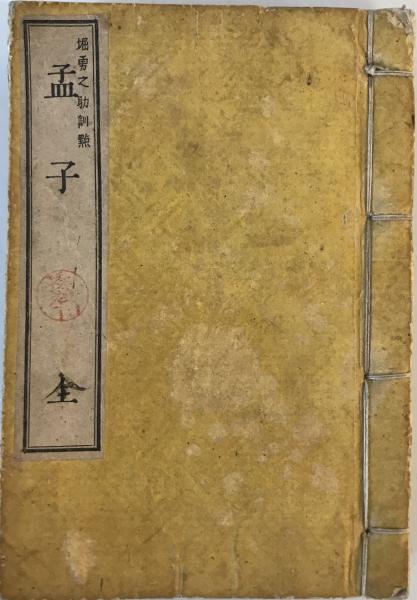 堀勇之助訓點
孟子 全